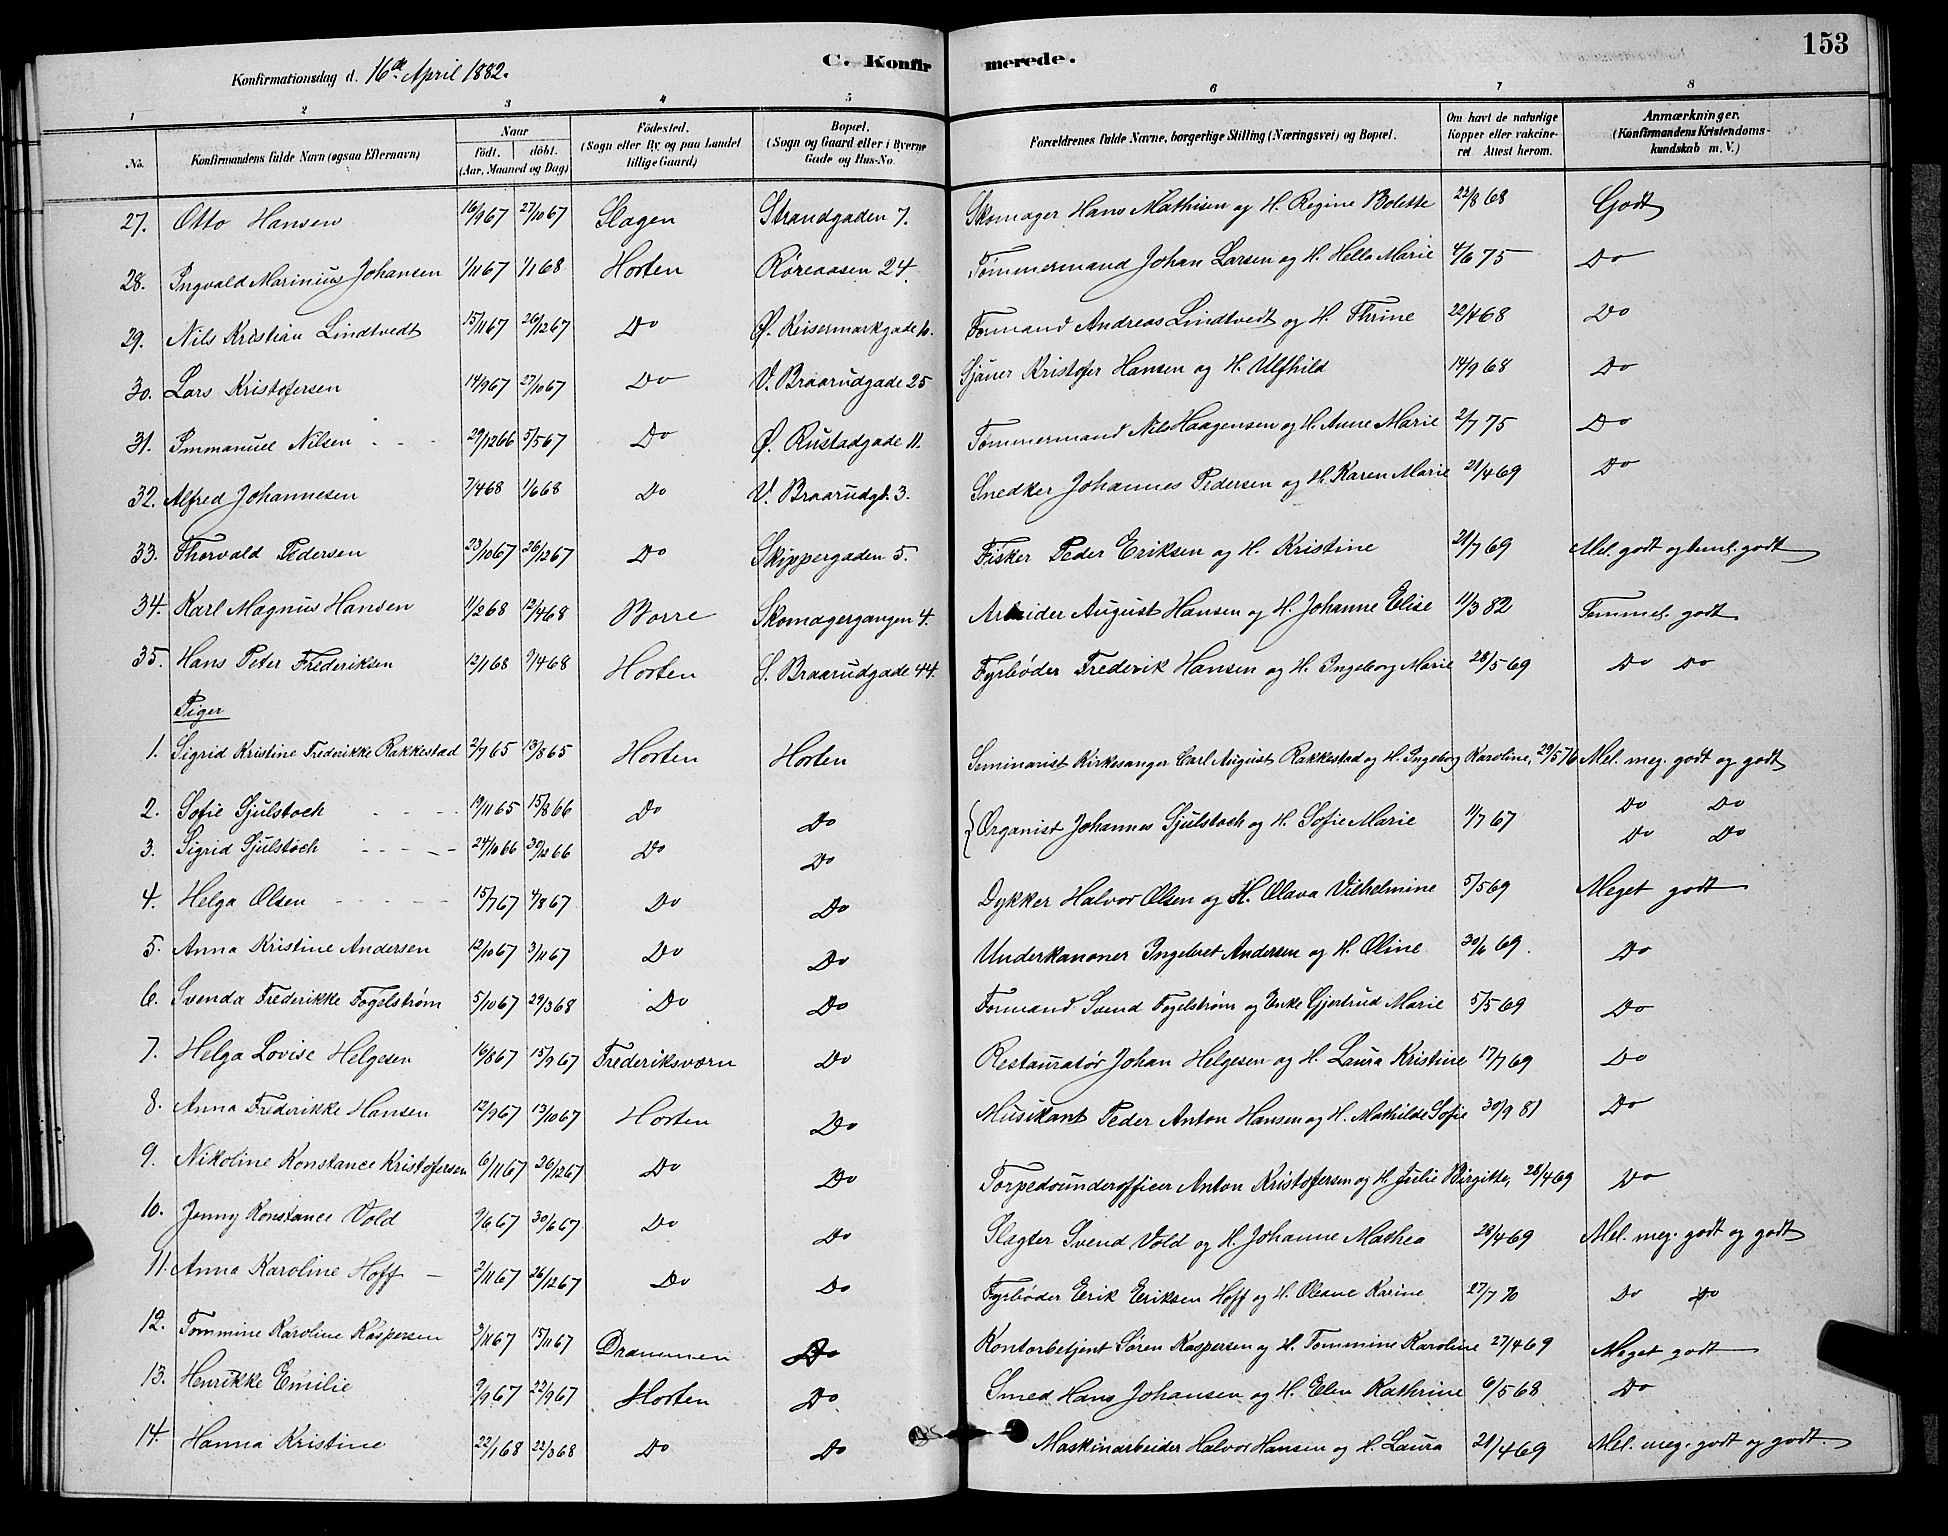 153
Konfirmationsdag d. 16de April 1882.
C. Konfirmerede.
1 2 3 4 5 6 7 8
No. | Konfirmandens fulde Navn (ogsaa Efternavn) | Naar födt. döbt. (Aar, Maaned og Dag) | Födested. (Sogn eller By og paa Landet tillige Gaard) | Bopæl. (Sogn og Gaard eller i Byerne Gade og Hus-No. | Forældrenes fulde Navne, borgerlige Stilling (Næringsvei) og Bopæl. | Om havt de naturlige Kopper eller vakcineret. Attest herom. | Anmærkninger. (Konfirmandens Kristendomskundskab m. V.)
27. Otto Hansen 16/9 67 27/10 67 Slagen Strandgaden 7. Skomager Hans Mathisen og H. Regine Bolette 22/8 68 Godt
28. Ingvald Marinius Johansen 1/11 67 1/1 68 Horten Røreaasen 24. Tømmermand Johan Larsen og H. Helle Marie 4/6 75 Do
29. Nils Kristian Lindtvedt 15/11 67 26/12 67 Do Ø. Keisermarkgade 10. Formand Andreas Lindtvedt og H. Thrine 22/4 68 Do
30. Lars Kristofersen 14/9 67 27/10 67 Do V. Braarudgade 25 Sjauer Kristofer Hansen og H. Ulfhild 14/9 68 Do
31. Immanuel Nilsen 29/12 66 5/5 67 Do Ø. Rustadgade 11. Tømmermand Nils Haagensen og H. Anne Marie 2/7 75 Do
32. Alfred Johannesen 7/4 68 1/6 68 Do V. Braarudgt. 3. Snedker Johannes Pedersen og H. Karen Marie 21/4 69 Do
33. Thorvald Pedersen 23/10 67 26/12 67 Do Skippergaden 5. Fisker Peder Eriksen og H. Kristine 21/7 69 Mel. godt og teml. godt
34. Karl Magnus Hansen 11/2 68 12/4 68 Borre Skomagergangen 4. Arbeider August Hansen og H. Johanne Elise 11/3 82 Temmel. godt
35. Hans Peter Frederiksen 12/1 68 9/4 68 Horten S. Braarudgade 44. Fyrbøder Frederik Hansen og H. Ingeborg Marie 28/5 69 Do Do
Piger
1. Sigrid Kristine Frederikke Rakkestad 2/7 65 13/8 65 Horten Horten Seminarist Kirkesanger Carl August Rakkestad og H. Ingeborg Karoline, 29/5 76 Mel. meg. godt og godt
2. Sofie Gjulstoch 19/11 65 15/8 66 Do Do { Organist Johannes Gjulstoch og H. Sofie Marie 11/7 67 Do Do
3. Sigrid Gjulstoch 24/10 66 30/12 66 Do Do Do Do
4. Helga Olsen 15/7 67 4/8 67 Do Do Dykker Halvor Olsen og H. Olava Vilhelmine 5/5 69 Meget godt
5. Anna Kristine Andersen 12/10 67 3/11 67 Do Do Underkanoner Ingebret Andersen og H. Oline 30/6 69. Do
6. Svenda Frederikke Fogelstrøm 5/10 67 29/3 68 Do Do Formand Svend Fogelstrøm og Enke Gjertrud Marie 5/5 69 Do
7. Helga Lovise Helgesen 16/8 67 15/9 67 Frederiksværn Do Restauratør Johan Helgesen og H. Laura Kristine 17/7 69 Do
8. Anna Frederikke Hansen 12/9 67 13/10 67 Horten Do Musikant Peder Anton Hansen og H. Mathilde Sofie 30/9 81 Do
9. Nikoline Konstance Kristofersen 6/11 67 26/12 67 Do Do Torpedounderofficer Anton Kristofersen og H. Julie Birgitte, 28/4 69 Do
10. Jenny Konstance Vold 9/6 67 30/6 67 Do Do Slagter Svend Vold og H. Johanne Mathea 28/4 69 Mel. meg. godt og godt
11. Anna Karoline Hoff 2/11 67 26/12 67 Do Do Fyrbøder Erik Eriksen Hoff og H. Oleane Karine 27/7 70 Do Do
12. Tommine Karoline Kaspersen 3/11 67 15/11 67 Drammen Do Kontorbetjent Søren Kaspersen og H. Tommine Karoline 27/4 69 Meget godt
13. Henrikke Emilie 9/9 67 22/9 67 Horten Do Smed Hans Johansen og H. Elen Kathrine 6/5 68 Do
14. Hanna Kristine 22/1 68 22/3 68 Do Do Maskinarbeider Halvor Hansen og H. Laura 28/4 69 Mel. meg. godt og godt.